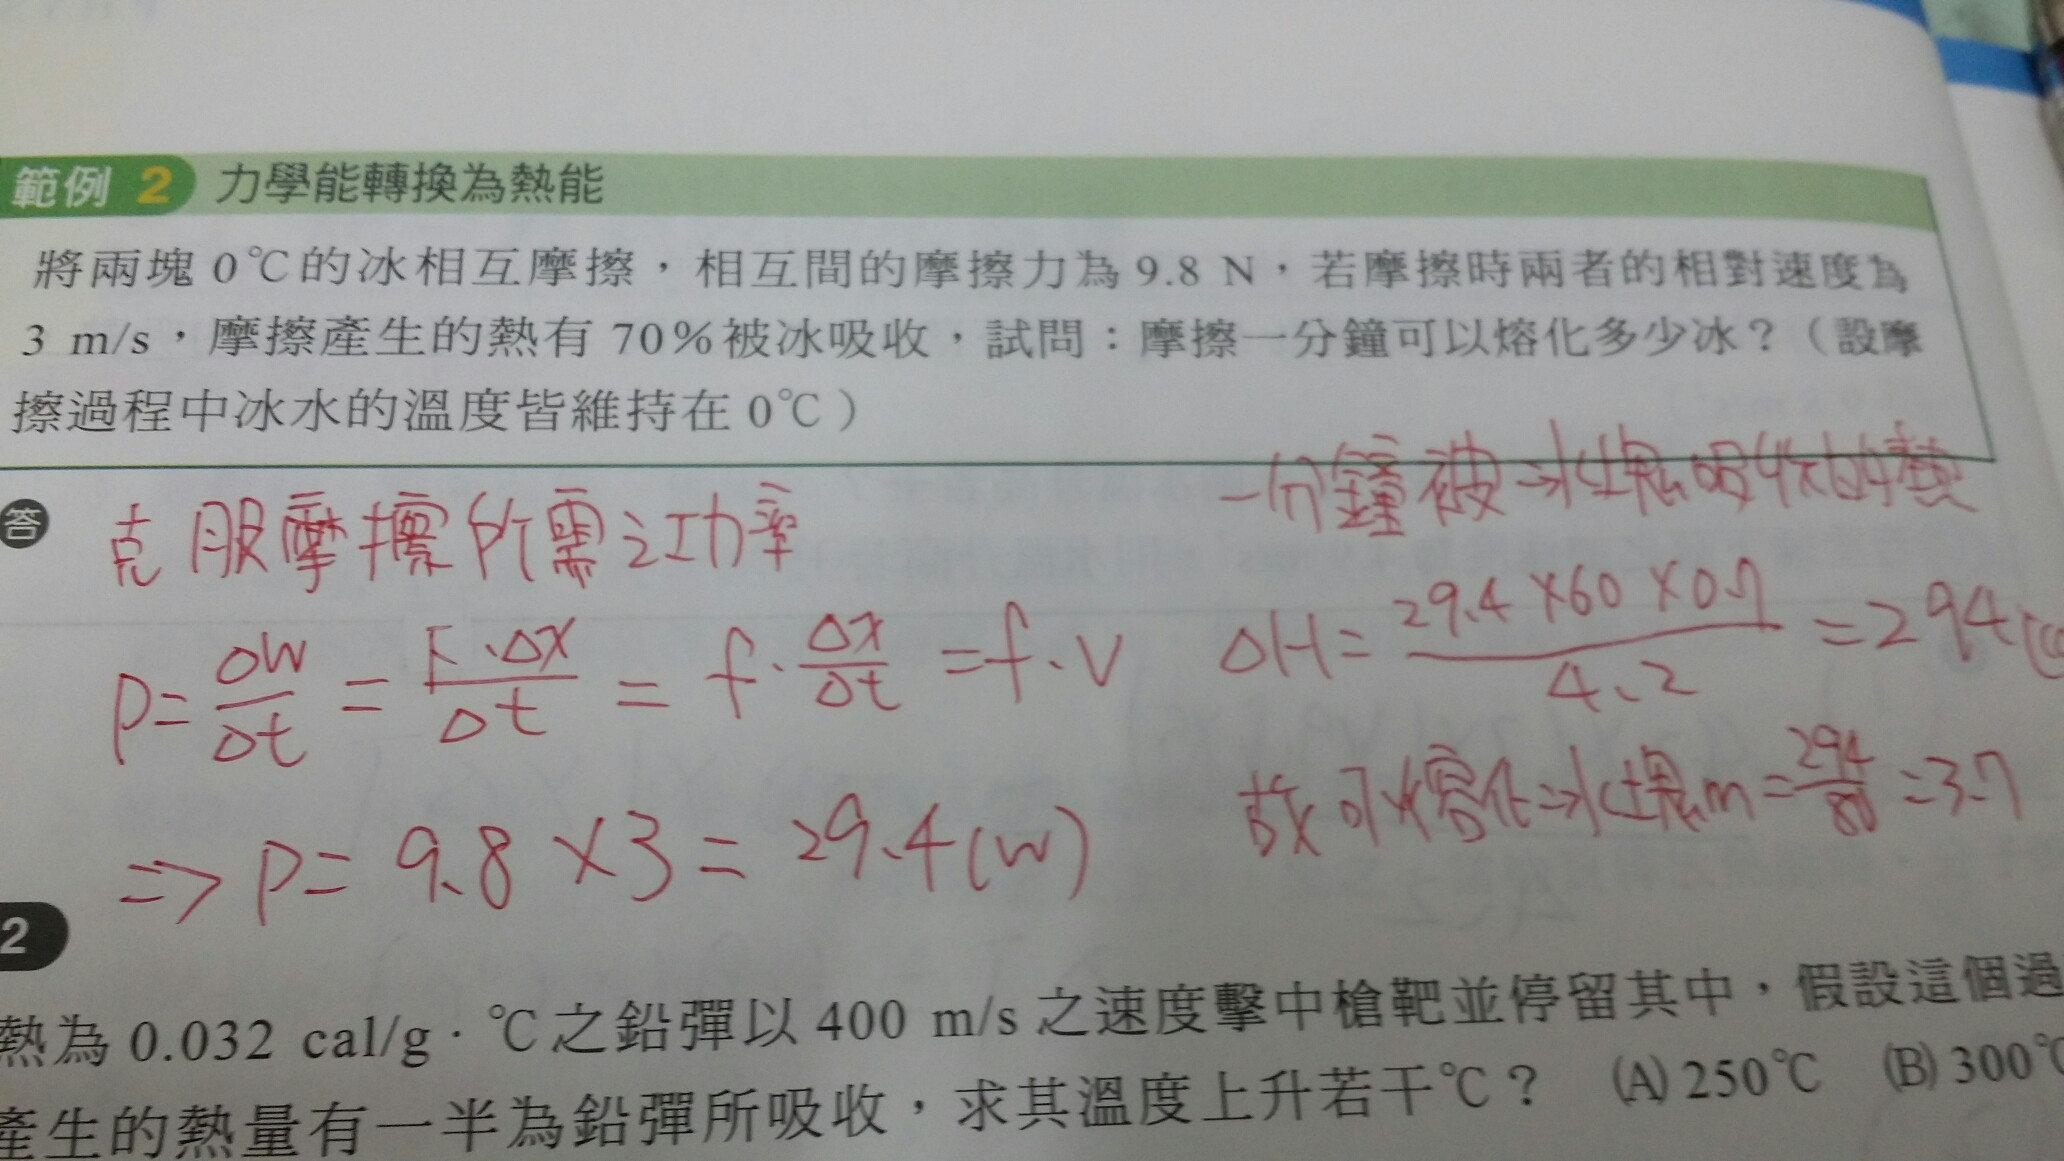 範例 2 力學能轉換為熱能
將兩塊 0℃的冰相互摩擦，相互間的摩擦力為 9.8 N，若摩擦時兩者的相對速度為
3 m/s，摩擦產生的熱有 70%被冰吸收，試問：摩擦一分鐘可以熔化多少冰？（設摩
擦過程中冰水的溫度皆維持在 0℃）
答
克服摩擦所需之功率
P=ΔW/Δt = F·Δx/Δt = f·Δx/Δt =f·V
⇒ P= 9.8×3= 29.4(W)
一分鐘被冰塊吸收的熱
ΔH= 29.4×60×0.7/4.2 =294
故可熔化冰塊m=294/80=3.7
2
熱為 0.032 cal/g·℃之鉛彈以 400 m/s 之速度擊中槍靶並停留其中，假設這個過
產生的熱量有一半為鉛彈所吸收，求其溫度上升若干℃？ (A) 250℃ (B) 300℃